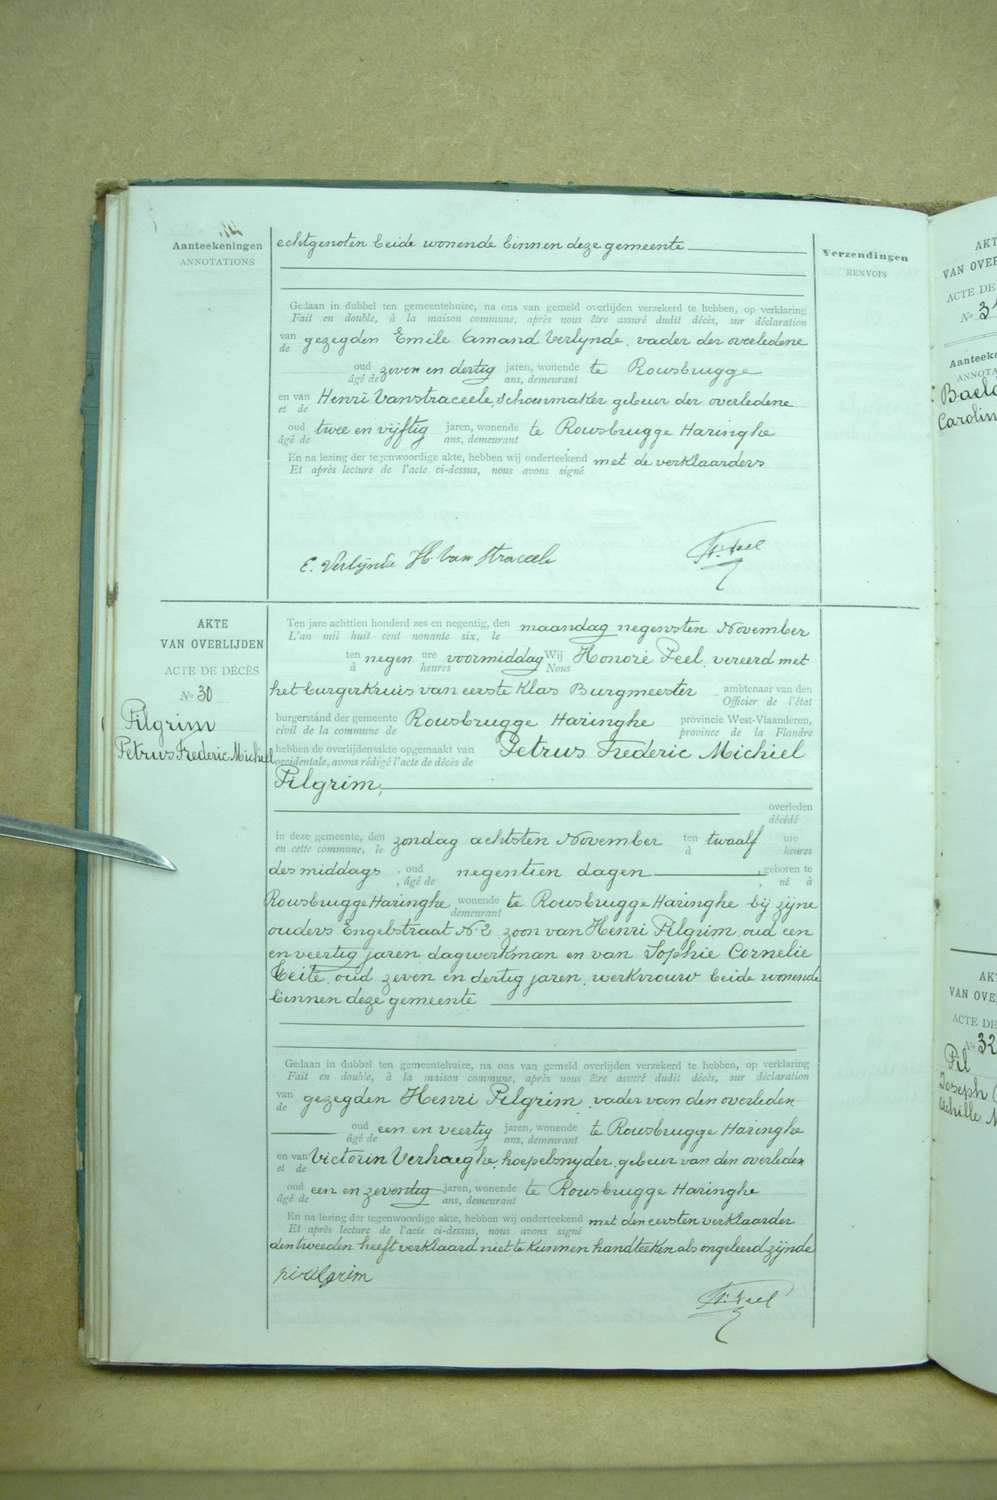 Aanteekeningen
ANNOTATIONS
Verzendingen
RENVOIS
echtgenoten beide wonende binnen deze gemeente
Gedaan in dubbel ten gemeentehuize, na ons van gemeld overlijden verzekerd te hebben, op verklaring
Fait en double, à la maison commune, après nous être assuré dudit décès, sur déclaration
van gezegden Emile Amand Verlynde, vader der overledene
de
oud zeven en dertig jaren, wonende te Rousbrugge
âgé de ans, demeurant
en van Henri Vanstraceele, schoenmaker gebeur der overledene
et de
oud twee en vyftig jaren, wonende te Rousbrugge Haringhe
âgé de ans, demeurant
En na lezing der tegenwoordige akte, hebben wij onderteekend met de verklaarders
Et après lecture de l'acte ci-dessus, nous avons signé
E. Verlijnde H Van Straceele H. Feel
AKTE
VAN OVERLIJDEN
ACTE DE DÉCÈS
No 30
Pilgrim
Petrus Frederic Michiel
Ten jare achttien honderd zes en negentig, den maandag negensten November
L'an mil huit-cent nonante six, le
ten negen ure voormiddag Wij Honoré Feel, vereerd met
à heures Nous
het burgerkruis van eerste Klas Burgmeester ambtenaar van den
Officier de l'état
burgerstand der gemeente Rousbrugge Haringhe provincie West-Vlaanderen,
civil de la commune de province de la Flandre
hebben de overlijdensakte opgemaakt van Petrus Frederic Michiel
occidentale, avons rédigé l'acte de décès de
Pilgrim,
overleden
décédé
in deze gemeente, den zondag achtsten November ten twaalf ure
en cette commune, le à heures
des middags, oud negentien dagen, geboren te
, âgé de , né à
Rousbrugge Haringhe wonende te Rousbrugge Haringhe bij zijne
demeurant
ouders Engelstraat No 2 zoon van Henri Pilgrim, oud een
en veertig jaren, dagwerkman en van Sophie Cornelie
Beite, oud zeven en dertig jaren, werkvrouw beide wonende
binnen deze gemeente
Gedaan in dubbel ten gemeentehuize, na ons van gemeld overlijden verzekerd te hebben, op verklaring
Fait en double, à la maison commune, après nous être assuré dudit décès, sur déclaration
van gezegden Henri Pilgrim, vader van den overleden
de
oud een en veertig jaren, wonende te Rousbrugge Haringhe
âgé de ans, demeurant
en van Victorin Verhaeghe, hoepelsnyder, gebeur van den overleden
et de
oud een en zeventig jaren, wonende te Rousbrugge Haringhe
âgé de ans, demeurant
En na lezing der tegenwoordige akte, hebben wij onderteekend met den eersten verklaarder
Et après lecture de l'acte ci-dessus, nous avons signé
den tweeden heeft verklaard niet te kunnen handteeken als ongeleerd zijnde
H. Feel
AKT
VAN OVER
ACTE DE
No 31
Aanteeke
ANNOTA
Carolin
AKT
VAN OVE
ACTE DE
No 32
Pil
Joseph
Achille M